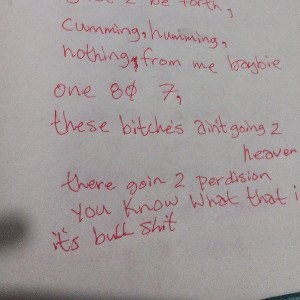 2 be forth,
cumming, humming,
nothing, from me baybie
one 80 7,
these bitches ain't going 2
heaven
there goin 2 perdision
you know what that i
it's bull shit